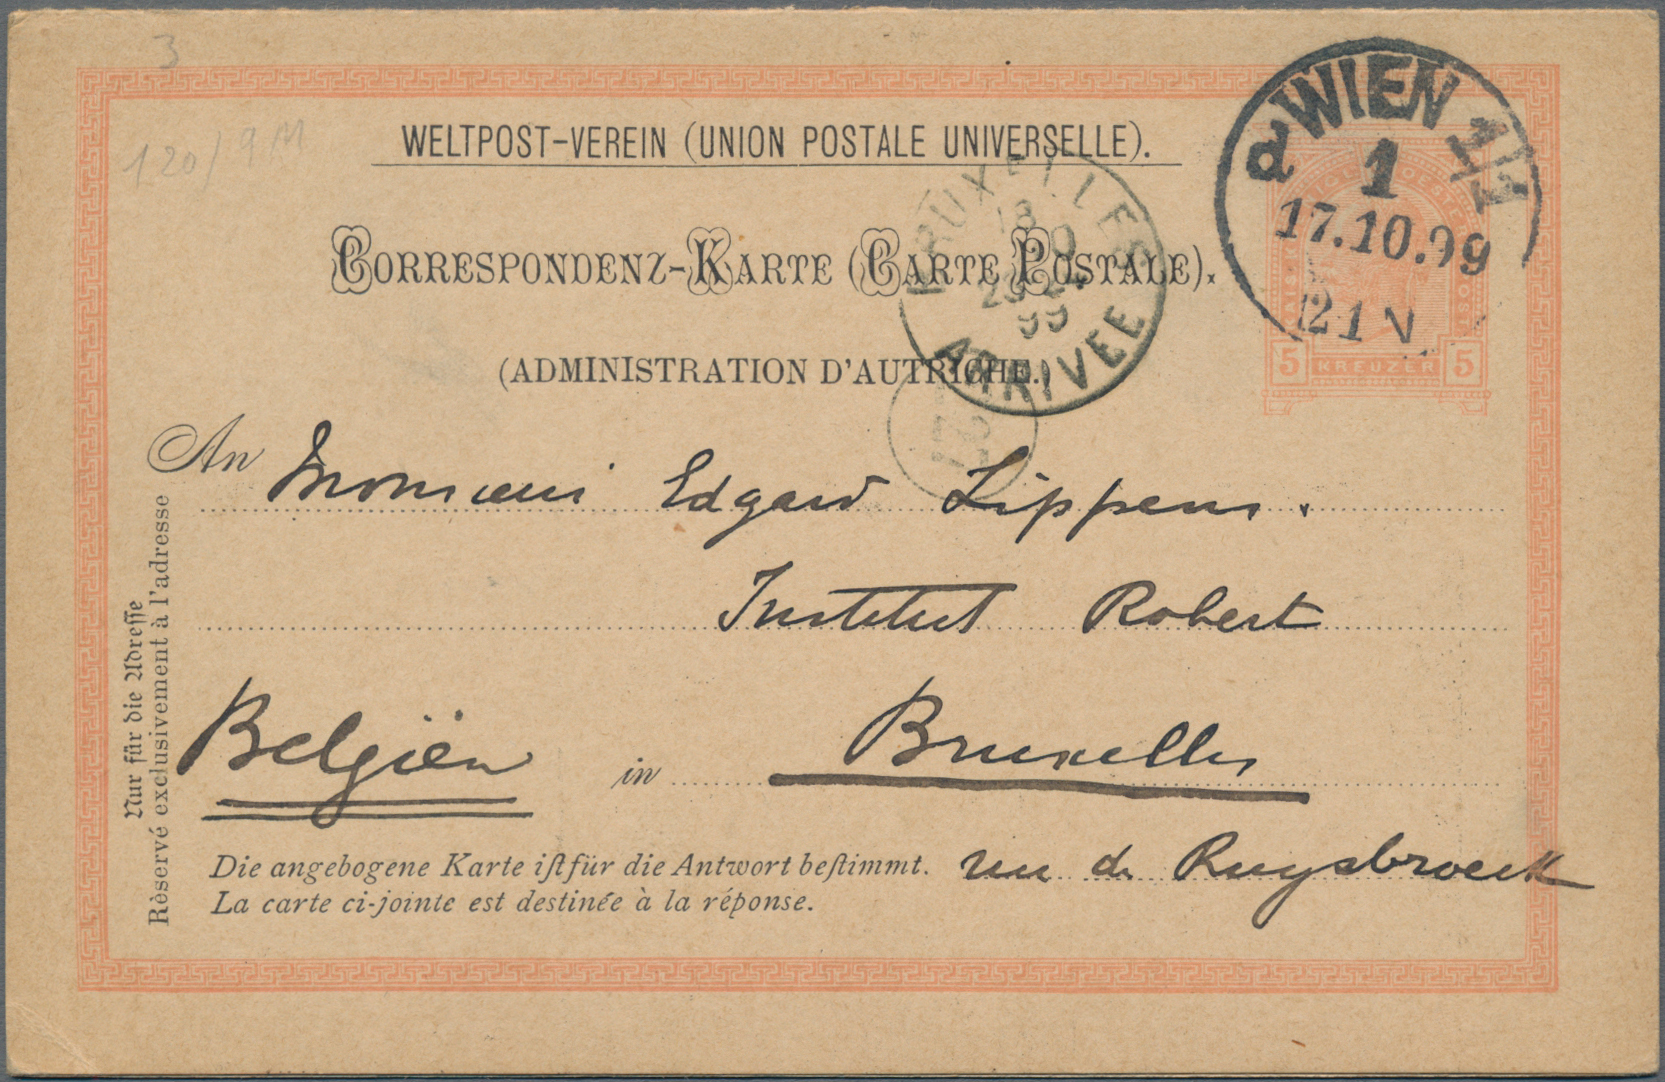 3
120/9M
WELTPOST-VEREIN (UNION POSTALE UNIVERSELLE).
CORRESPONDENZ-KARTE (CARTE POSTALE).
(ADMINISTRATION D'AUTRICHE.)
WIEN 1/1
1
17.10.99
d
BRUXELLES
99
ARRIVEE
5 KREUZER 5
An Monsieur Edgard Lippens.
Institut Robert
Belgien in Bruxelles
rue de Ruysbroeck
Die angebogene Karte iſt für die Antwort beſtimmt.
La carte ci-jointe est destinée à la réponse.
Nur für die Adreſſe
Rèservé exclusivement à l'adresse